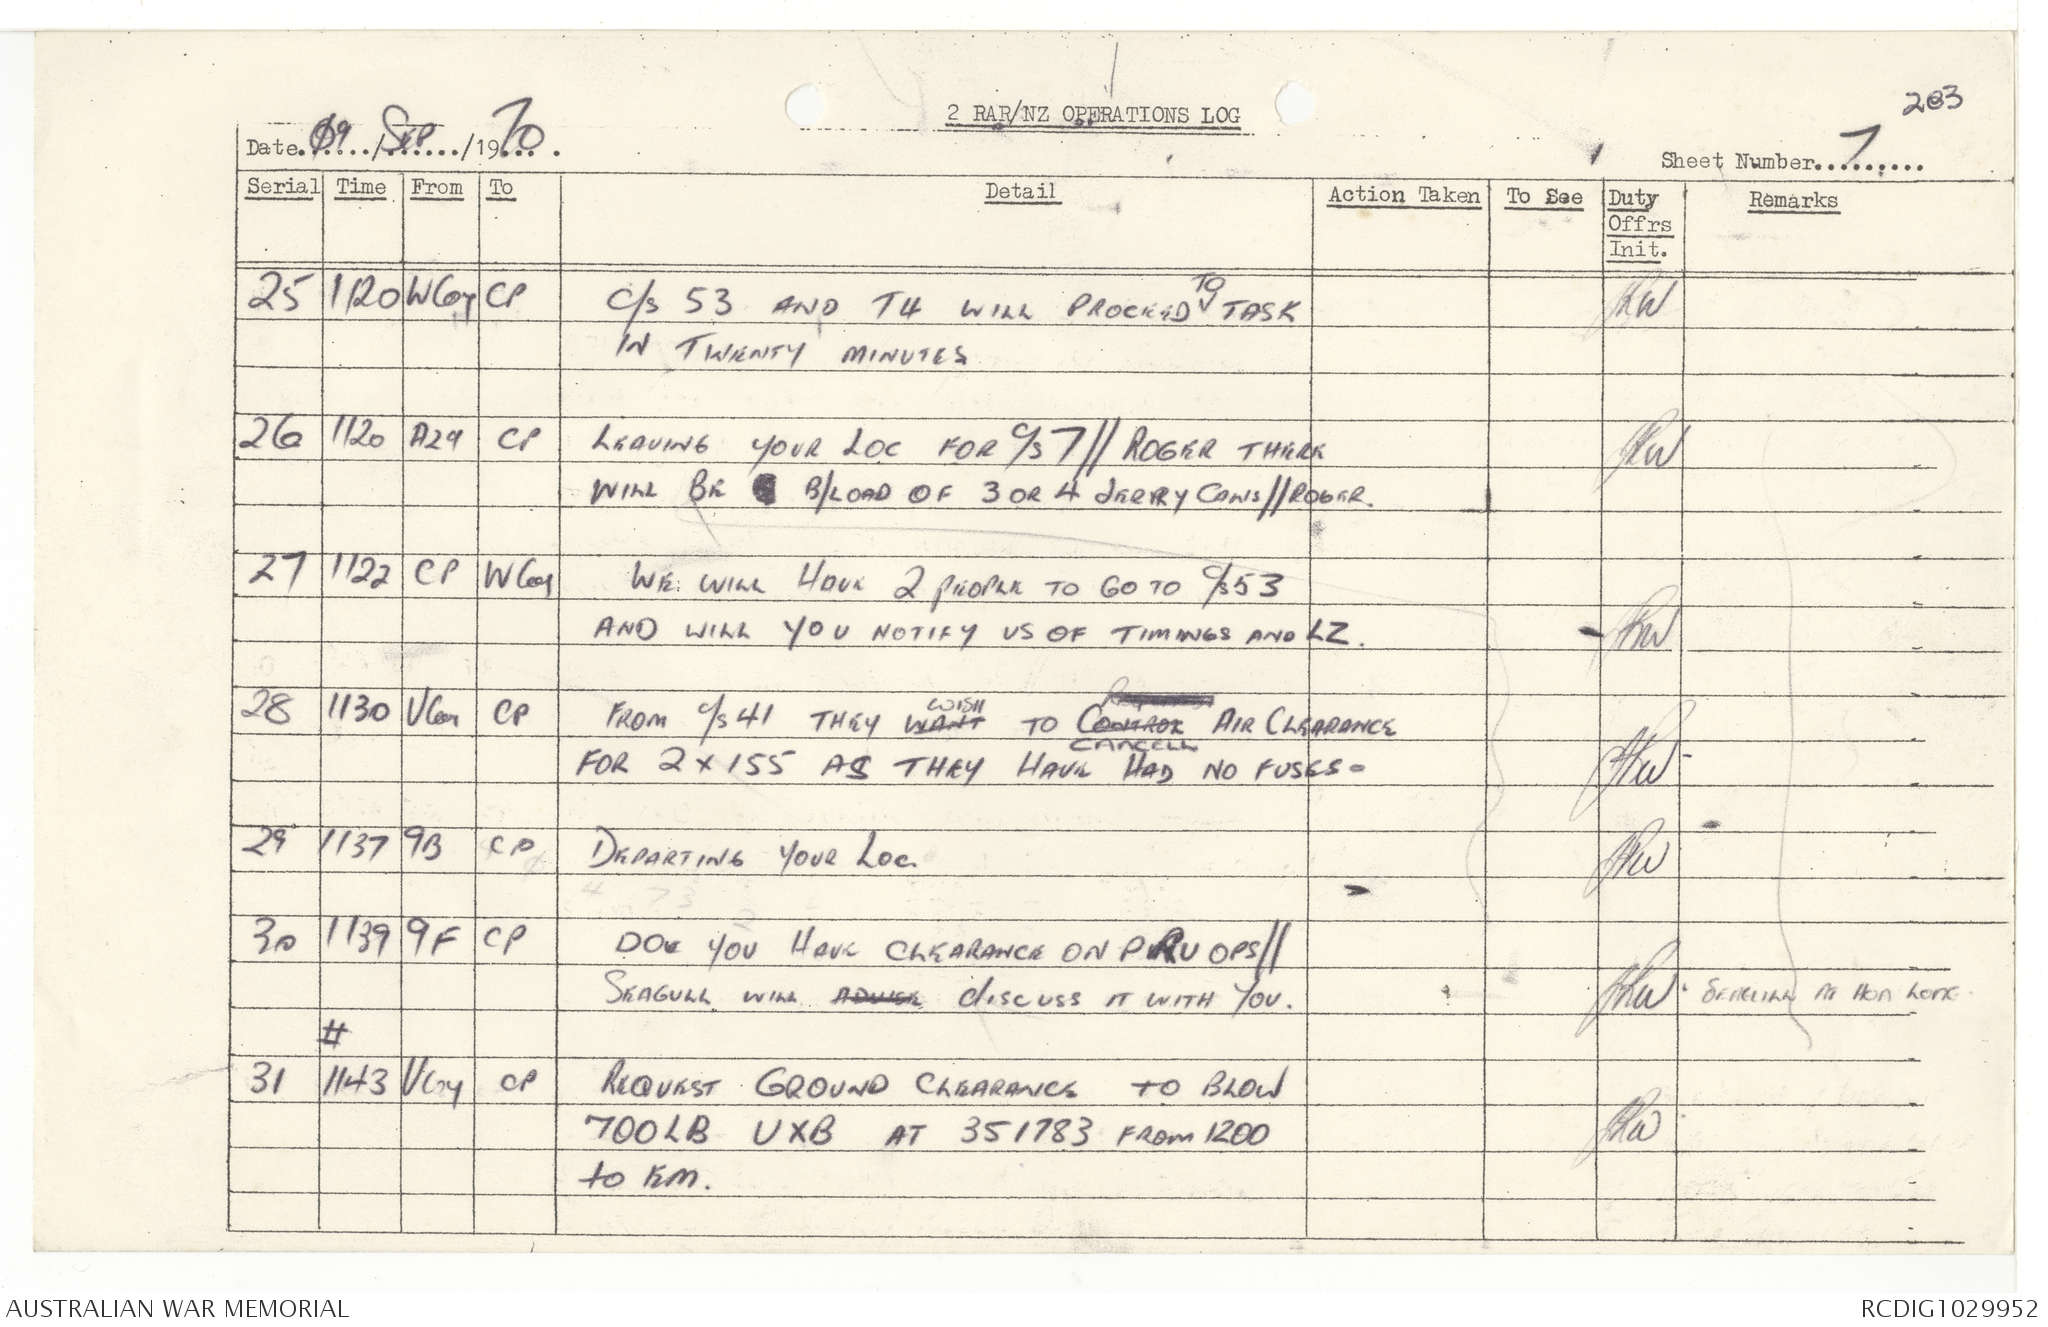 203
2 RAR/NZ OPERATIONS LOG
Date 09/SEP/1970.
Sheet Number 7
Serial Time From To Detail Action Taken To See Duty Offrs Init. Remarks
25 1120 WCoy CP C/S 53 AND T4 WILL PROCEED TO TASK
IN TWENTY MINUTES
26 1120 A29 CP LEAVING YOUR LOC FOR C/S 7// ROGER THERE
WILL BE B/LOAD OF 3 OR 4 JERRY CANS//ROGER.
27 1122 CP WCoy WE WILL HAVE 2 PEOPLE TO GO TO C/S 53
AND WILL YOU NOTIFY US OF TIMINGS AND LZ.
28 1130 VCoy CP FROM C/S 41 THEY WANT WISH TO CONTROL CANCELL AIR CLEARANCE
FOR 2 X 155 AS THEY HAVE HAD NO FUSES-
29 1137 9B CP DEPARTING YOUR LOC.
30 1139 9F CP DOE YOU HAVE CLEARANCE ON PRU OPS//
SEAGULL WILL ADVISE DISCUSS IT WITH YOU. SEAGULL AT HOA LONG.
#
31 1143 VCoy CP REQUEST GROUND CLEARANCE TO BLOW
700LB UXB AT 351783 FROM 1200
TO KM.
AUSTRALIAN WAR MEMORIAL
RCDIG1029952